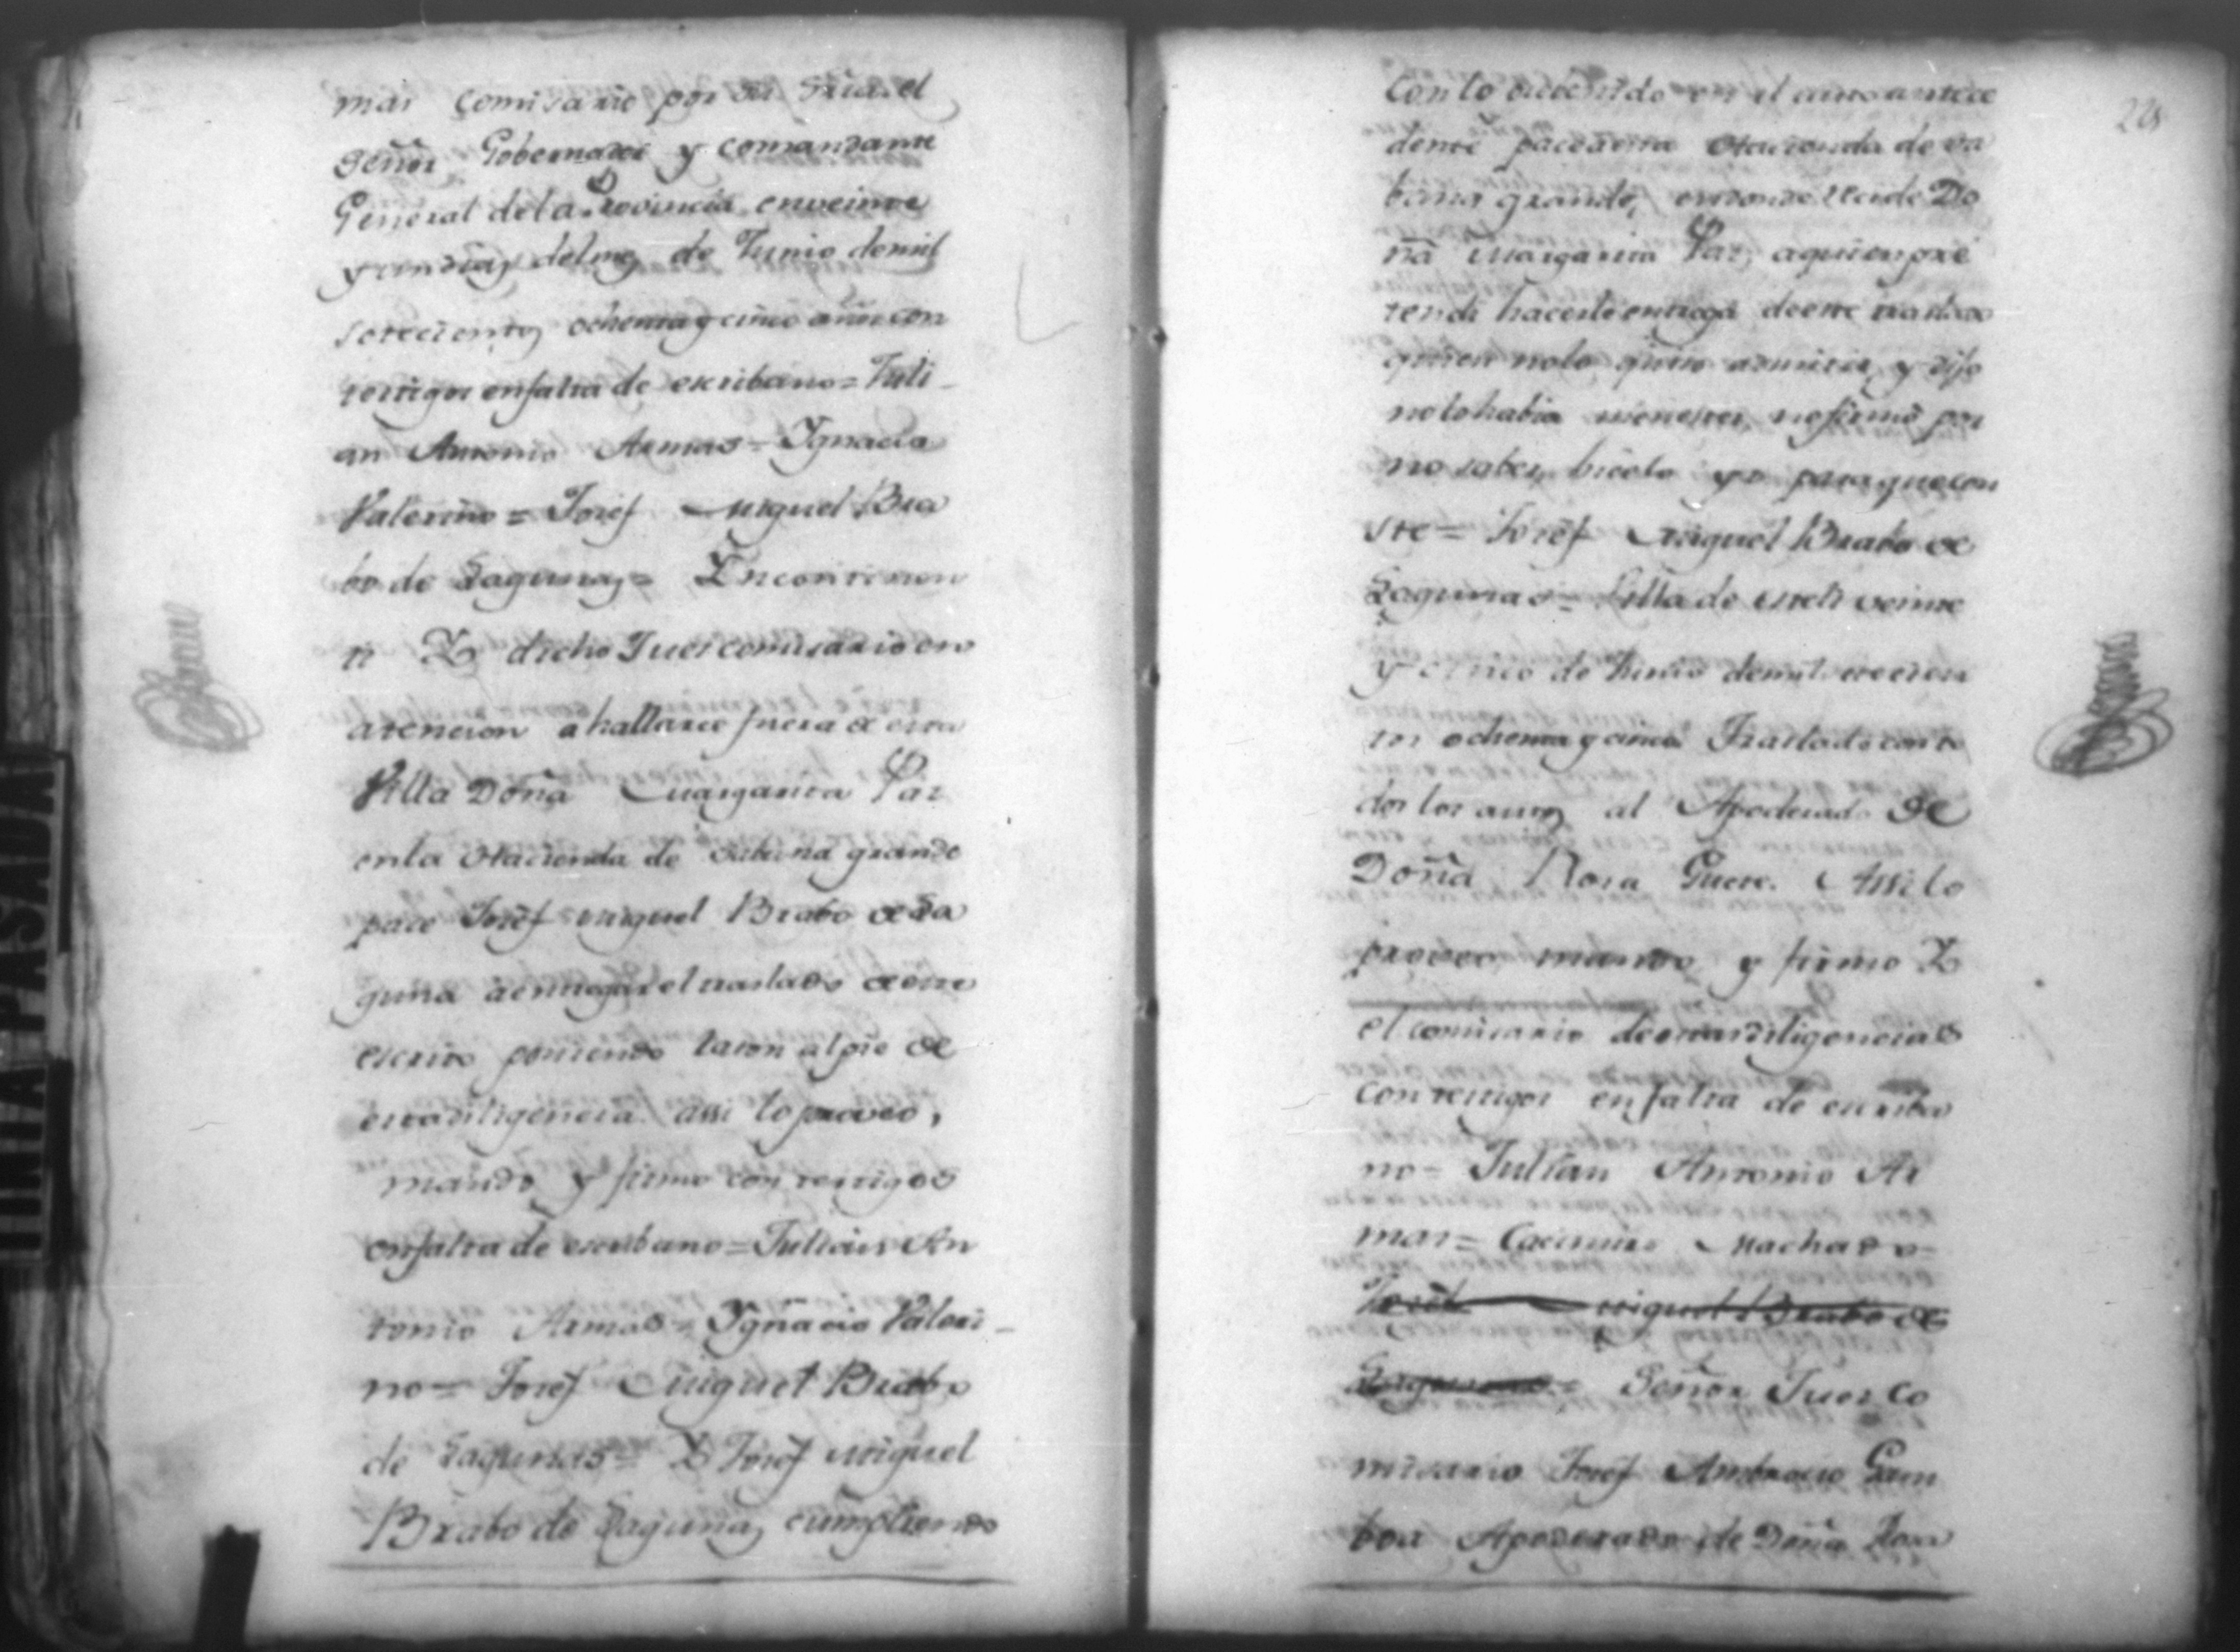 mas Comisario por su Sria el
Señor Gobernador y comandante
General dela Provincia enveinte
y un dias delmes de Junio demil
setecientos ochenta y cinco años con
testigos enfalta de escribano = Juli-
an Antonio Armas = Ygnacio
Valerino = Josef Miguel Bra
bo de Lagunas = Incontinen
ti Yo dicho Juez comisario en
atencion a hallarse fuera de esta
Villa Doña Margarita Paz
enla Hacienda de Sabana grande
pace Josef Miguel Brabo de La
guna a entregar el traslado de este
escrito poniendo razon al pie de
esta diligencia assi lo proveo,
mando y firmo con testigos
enfalta de escribano = Julian An
tonio Armas = Ygnacio Valeri-
no = Josef Miguel Brabo
de Lagunas = Yo Josef Miguel
Brabo de Lagunas cumpliendo
con lo en el auto antece
dente pace a esta Hacienda de Sa
bana grande, en donde recide Do
ña Margarita Paz, aquien pre
tendi hacerle entrega de este traslado
quien nolo quiso admitir y dijo
nolo habia menester, no firmó por
no saber, hicelo yo para que con
ste = Josef Miguel Brabo de
Lagunas = Villa de veinte
y cinco de Junio demil setecien
tos ochenta y cinco Traslado con to
dos los autos al Apoderado de
Doña Rosa Guerc. Assi lo
proveo mando y firmo Yo
el comisario de estas diligencias
con testigos enfalta de escriba
no = Julian Antonio Ar
mas = Casimiro Machado =
Josef Miguel Brabo de
Lagunas = Señor Juez Co
misario Josef Ambrocio Gam
boa Apoderado de Doña Rosa